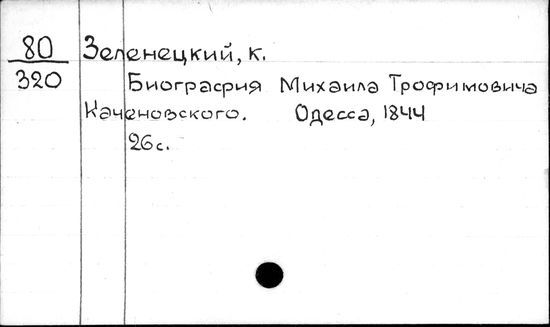 80 Зеленецкий, К.
320 Биография Михаила Трофимовича
Каченовского. Одесса, 1844
26с.